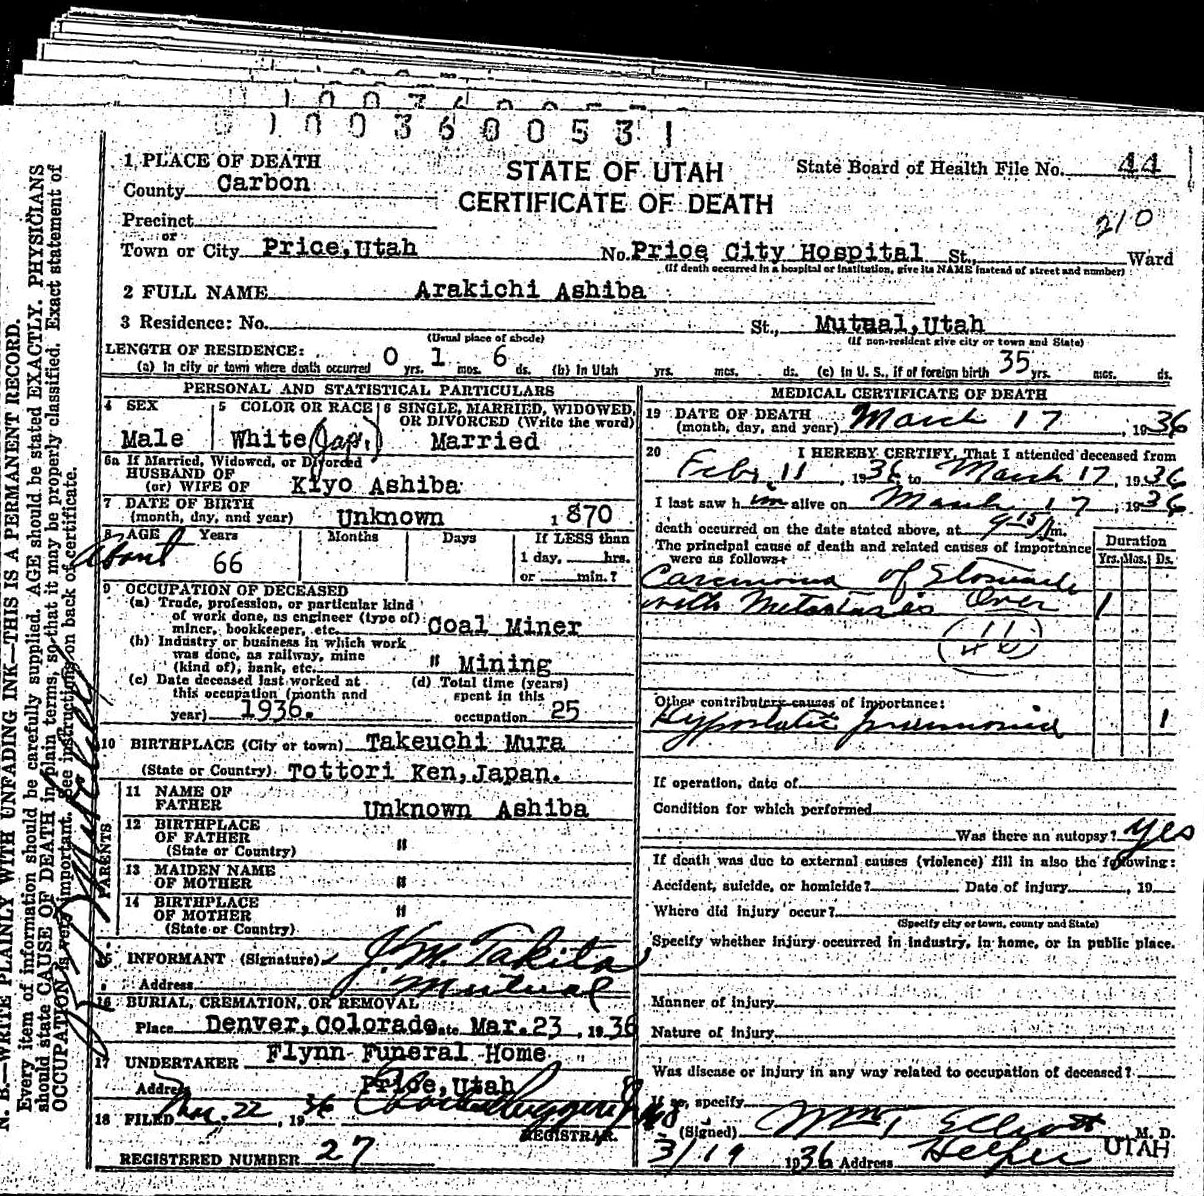 1003600531
1 PLACE OF DEATH
STATE OF UTAH
CERTIFICATE OF DEATH
State Board of Health File No. 44
County Carbon
210
Precinct
or
Town or City Price, Utah No. Price City Hospital St., Ward
(If death occurred in a hospital or institution, give its NAME instead of street and number)
2 FULL NAME Arakichi Ashiba
3 Residence: No. St., Mutual, Utah
(Usual place of abode) (If non-resident give city or town and State)
LENGTH OF RESIDENCE:
(a) In city or town where death occurred 0 yrs. 1 mos. 6 ds. (b) In Utah yrs. mos. ds. (c) In U. S., if of foreign birth 35 yrs. mos. ds.
PERSONAL AND STATISTICAL PARTICULARS
4 SEX
Male
5 COLOR OR RACE
White (Jap.)
6 SINGLE, MARRIED, WIDOWED, OR DIVORCED (Write the word)
Married
6a If Married, Widowed, or Divorced
HUSBAND OF
(or) WIFE OF Kiyo Ashiba
7 DATE OF BIRTH
(month, day, and year) Unknown 1870
8 AGE Years Months Days If LESS than
1 day, hrs.
or min.?
About 66
9 OCCUPATION OF DECEASED
(a) Trade, profession, or particular kind
of work done, as engineer (type of)
miner, bookkeeper, etc. Coal Miner
(b) Industry or business in which work
was done, as railway, mine
(kind of), bank, etc. " Mining
(c) Date deceased last worked at
this occupation (month and
year) 1936.
(d) Total time (years)
spent in this
occupation 25
10 BIRTHPLACE (City or town) Takeuchi Mura
(State or Country) Tottori Ken, Japan.
PARENTS
11 NAME OF
FATHER Unknown Ashiba
12 BIRTHPLACE
OF FATHER "
(State or Country)
13 MAIDEN NAME
OF MOTHER "
14 BIRTHPLACE
OF MOTHER "
(State or Country)
15 INFORMANT (Signature) J. M. Takita
Address Mutual
16 BURIAL, CREMATION, OR REMOVAL
Place Denver, Colorado Date Mar. 23, 1936
17 UNDERTAKER Flynn Funeral Home
Address Price, Utah
18 FILED Mar. 22, 1936
REGISTRAR.
REGISTERED NUMBER 27
MEDICAL CERTIFICATE OF DEATH
19 DATE OF DEATH
(month, day, and year) March 17, 1936
20 I HEREBY CERTIFY, That I attended deceased from
Feb. 11 1936 to March 17, 1936
I last saw him alive on March 17, 1936
death occurred on the date stated above, at 9-15 m.
The principal cause of death and related causes of importance
were as follows:
Duration
Yrs. Mos. Ds.
Carcinoma of Stomach
with Metastasis Over 1
Other contributory causes of importance:
Hypostatic pneumonia 1
If operation, date of
Condition for which performed
Was there an autopsy? Yes
If death was due to external causes (violence) fill in also the following:
Accident, suicide, or homicide? Date of injury , 19
Where did injury occur?
(Specify city or town, county and State)
Specify whether injury occurred in industry, in home, or in public place.
Manner of injury
Nature of injury
Was disease or injury in any way related to occupation of deceased?
If so, specify
(Signed) Elliott M. D.
3/19 1936 Address Helper UTAH
N. B.—WRITE PLAINLY WITH UNFADING INK—THIS IS A PERMANENT RECORD.
Every item of information should be carefully supplied. AGE should be stated EXACTLY. PHYSICIANS
should state CAUSE OF DEATH in plain terms, so that it may be properly classified. Exact statement of
OCCUPATION is very important. See instructions on back of certificate.